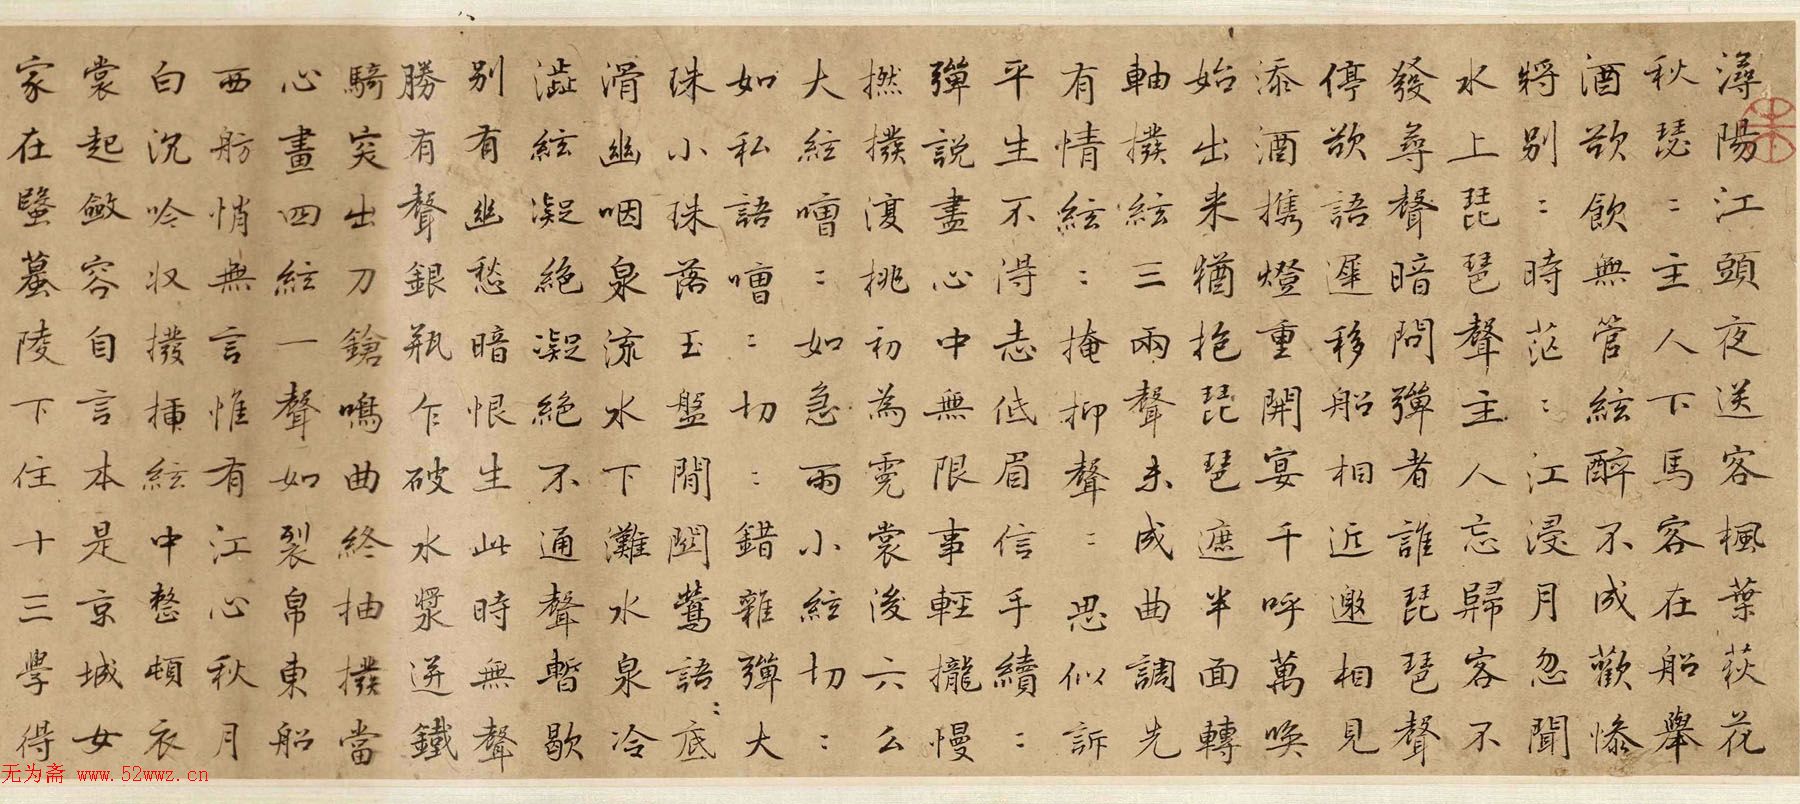 潯陽江頭夜送客楓葉荻花
秋瑟：主人下馬客在船舉
酒欲飲無管絃醉不成歡慘
將別：時茫：江浸月忽聞
水上琵琶聲主人忘歸客不
發尋聲暗問彈者誰琵琶聲
停欲語遲移船相近邀相見
添酒攜燈重開宴千呼萬喚
始出来猶抱琵琶遮半面轉
軸撥絃三兩聲未成曲調先
有情絃：掩抑聲：思似訴
平生不得志低眉信手續：
彈說盡心中無限事輕攏慢
撚撥復挑初為霓裳後六么
大絃嘈：如急雨小絃切：
如私語嘈：切：錯雜彈大
珠小珠落玉盤間關鶯語：底
滑幽咽泉流水下灘水泉冷
澁絃凝絕凝絕不通聲暫歇
別有幽愁暗恨生此時無聲
勝有聲銀瓶乍破水漿迸鐵
騎突出刀鎗鳴曲終抽撥當
心畫四絃一聲如裂帛東船
西舫悄無言惟有江心秋月
白沉吟收撥插絃中整頓衣
裳起斂容自言本是京城女
家在蝦蟇陵下住十三學得
无为斋 www.52wwz.cn